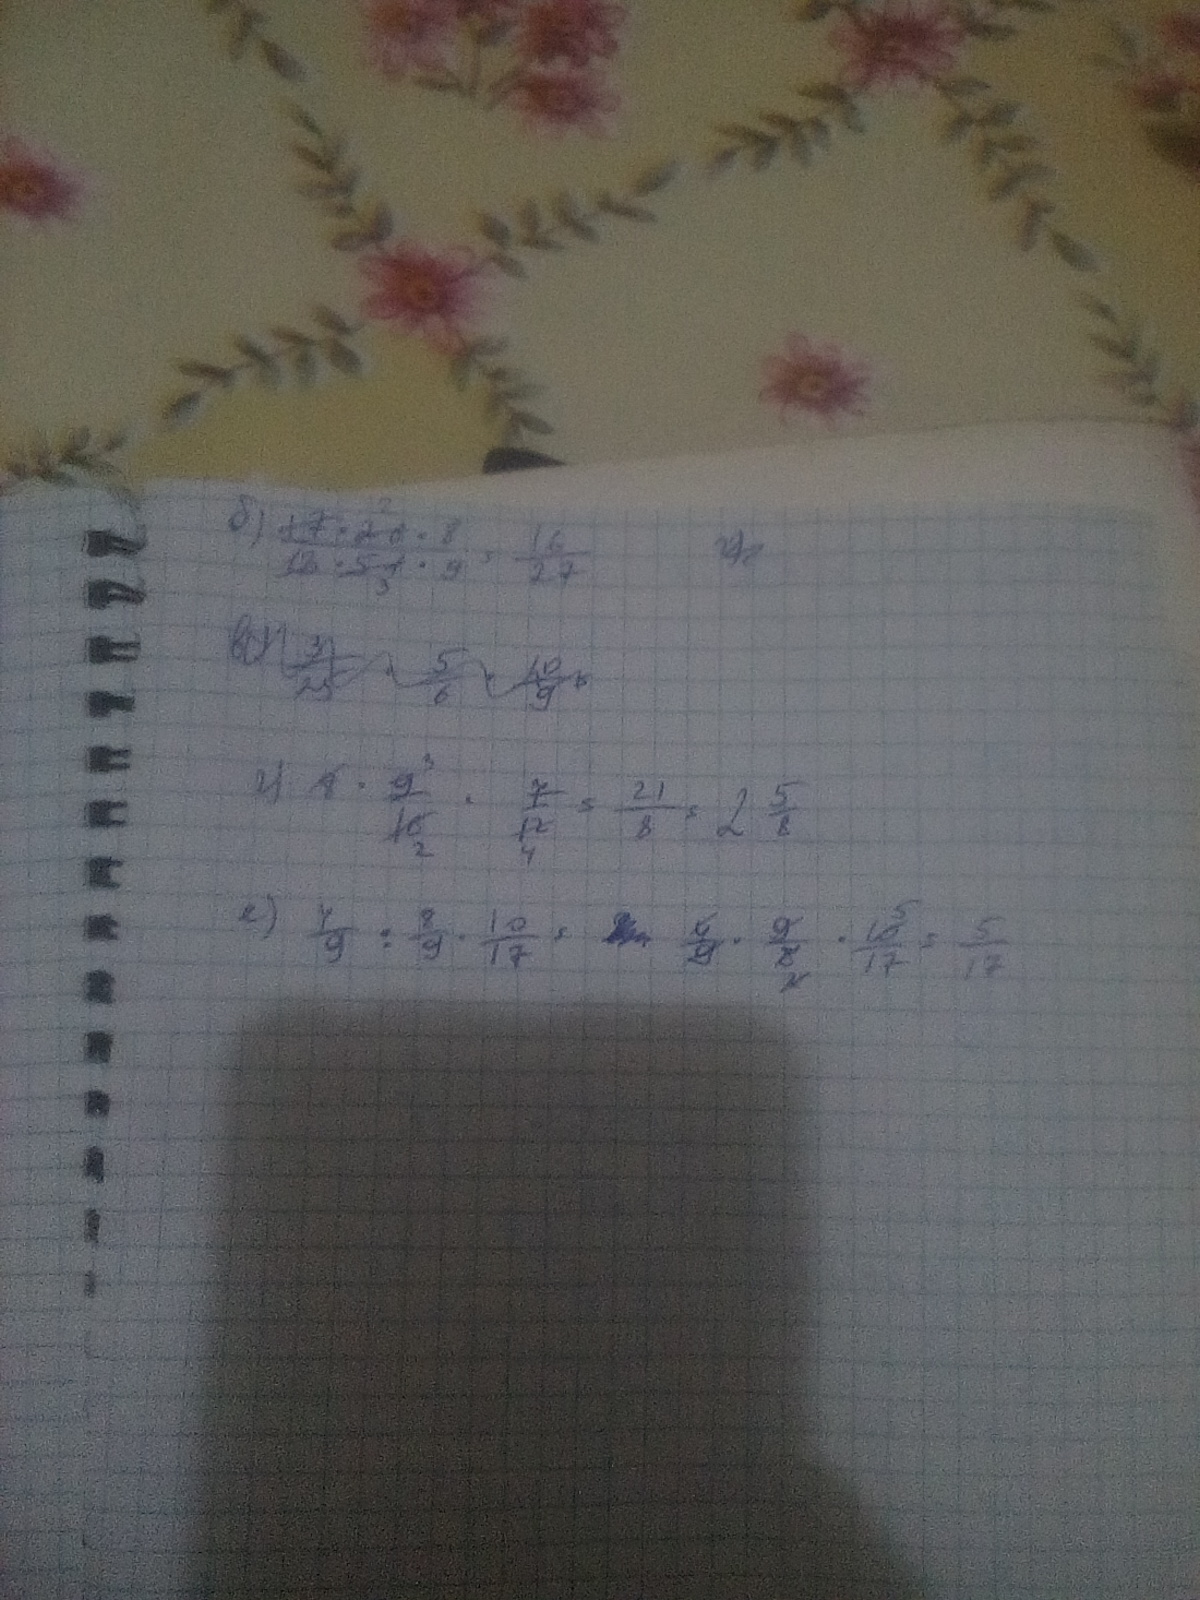 б) (17 · 20 · 8)/(10 · 51 · 9) = 16/27
3/25 · 5/6 · 10/9
г) · 9/10 · 7/12 = 21/8 = 2 5/8
е) /9 : 8/9 · 10/17 = /9 · 9/8 · 10/17 = 5/17